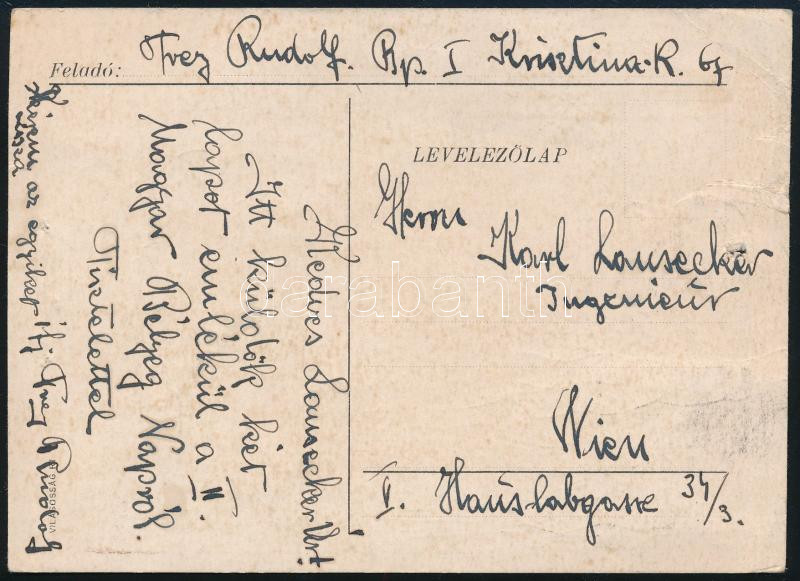 Feladó: Trez Rudolf. Bp. I Krisztina-k. 67
LEVELEZŐLAP
Herrn
Karl Lausecker
Ingenieur
Wien
V. Hauslabgasse 34/3.
Kedves Lausecker Úr!
Itt küldök két
lapot emlékül a II.
Magyar Bélyeg Napról.
Tisztelettel
ifj. Trez Rudolf
Kérem az egyiket
vissza
VILÁGOSSÁG
darabanth